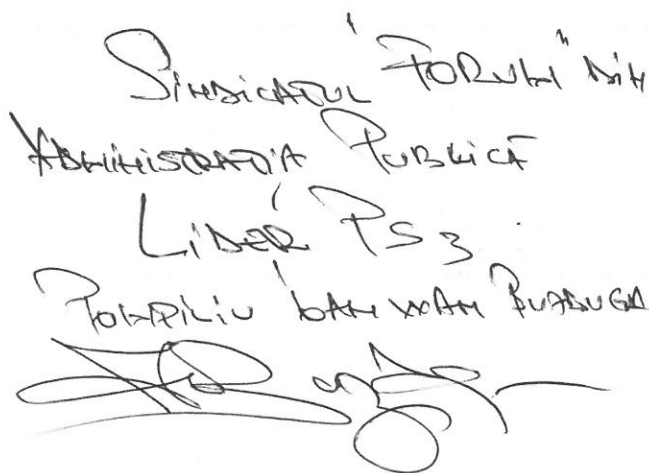 SINDICATUL "FORUM" DIN
ADMINISTRAȚIA PUBLICĂ
LIDER PS3
POMPILIU IOAN BUZDUGA